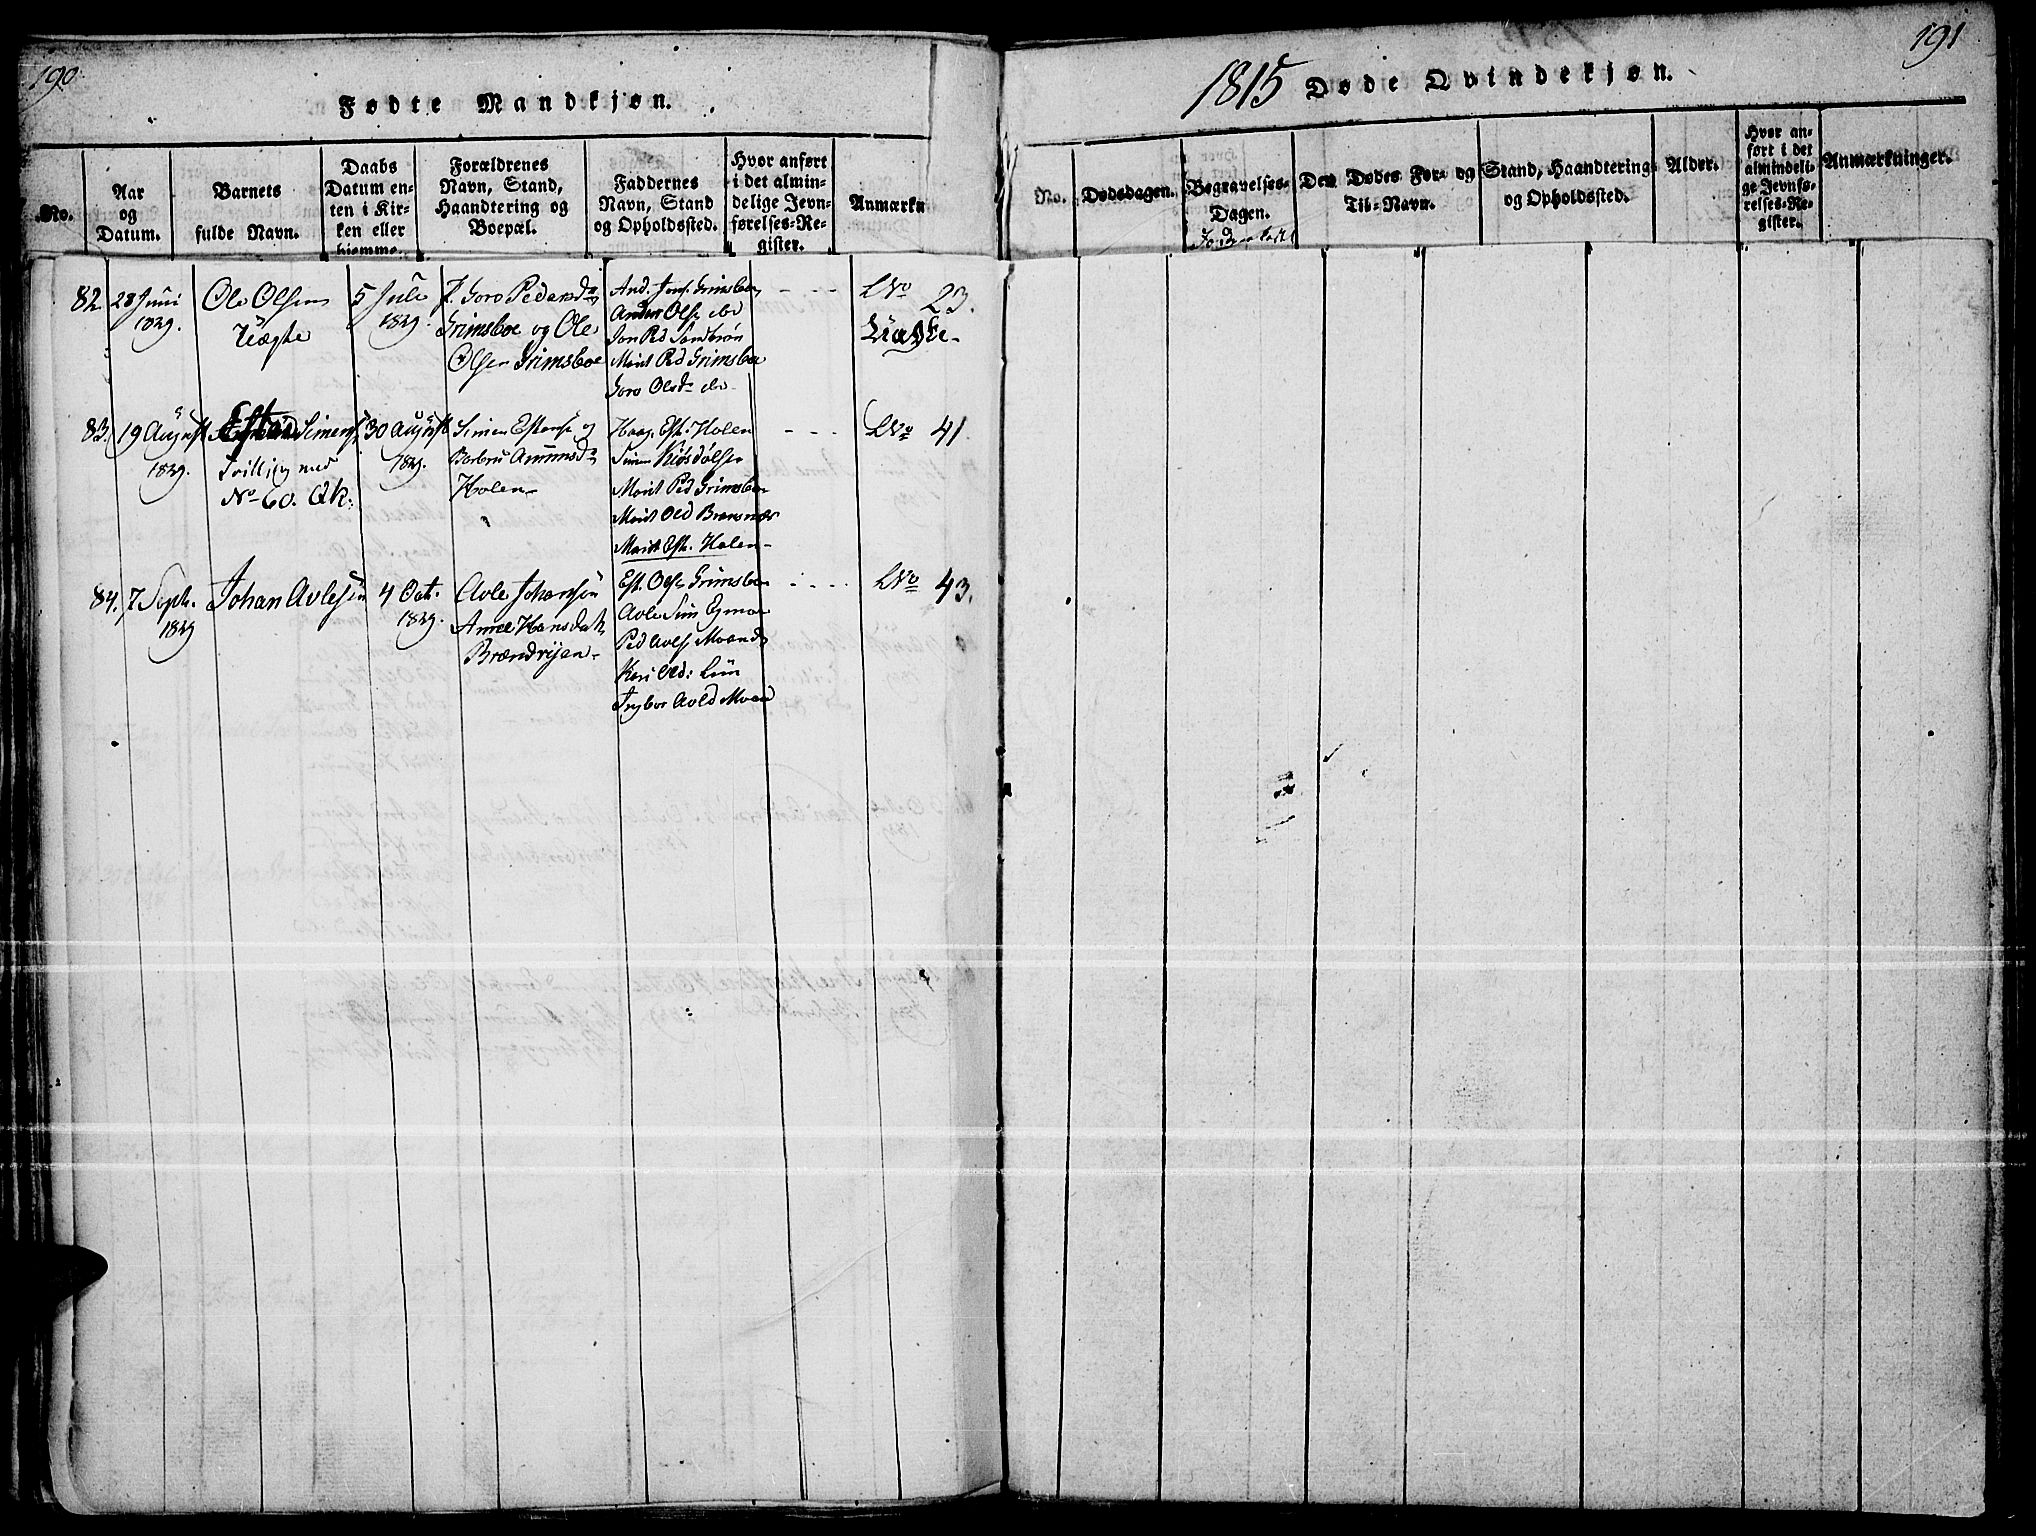 190
Fødte Mandkjøn.
No.
Aar
og
Datum.
Barnets
fulde Navn.
Daabs
Datum en-
ten i Kir-
ken eller
hjemme.
Forældrenes
Navn, Stand,
Haandtering og
Boepæl.
Faddernes
Navn, Stand
og Opholdssted.
Hvor anført
i det almin-
delige Jevn-
førelses-Re-
gister.
Anmærkn
82. 28 Juni
1829.
Ole Olsen
Uægte
5 Juli
1829.
Goro Pedersd
Grimsboe og Ole
Olsen Grimsboe
And. Jons. Grimsboe
Anders Ols ibd
Jon Ped Sandbrøn
Marit Ped Grimsboe
Goro Olsd ibd
- - -
LNo 23.
Uægte-
83. 19 August
1829.
Estен Simens
Tvilling med
No 60. Qk.
30 August
1829.
Simen Estense og
Barbru Amunsd
Holen-
Haag. Est. Holen
Simen Kiøsdølsen
Marit Ped Grimsboe
Marit Old Brænnær
Marit Est. Holen-
- - -
LNo 41.
84. 7 Septb.
1829
Johan Avlesen
4 Oct.
1829.
Avle Johansen
Anne Hansdat
Brændvijen-
Est. Olse Grimsboe
Avle Sim Egmoe
Ped Avls Moend
Kari Old: Lün
Ingbor Avld Moen
- - - -
LNo 43.
191
1815 Døde Qvindekjøn.
No.
Dødsdagen.
Begravelses-
Dagen.
Den Dødes For- og
Til-Navn.
Stand, Haandtering
og Opholdssted.
Alder.
Hvor an-
ført i det
almindeli-
ge Jevnfø-
relses-Re-
gister.
Anmærkninger.